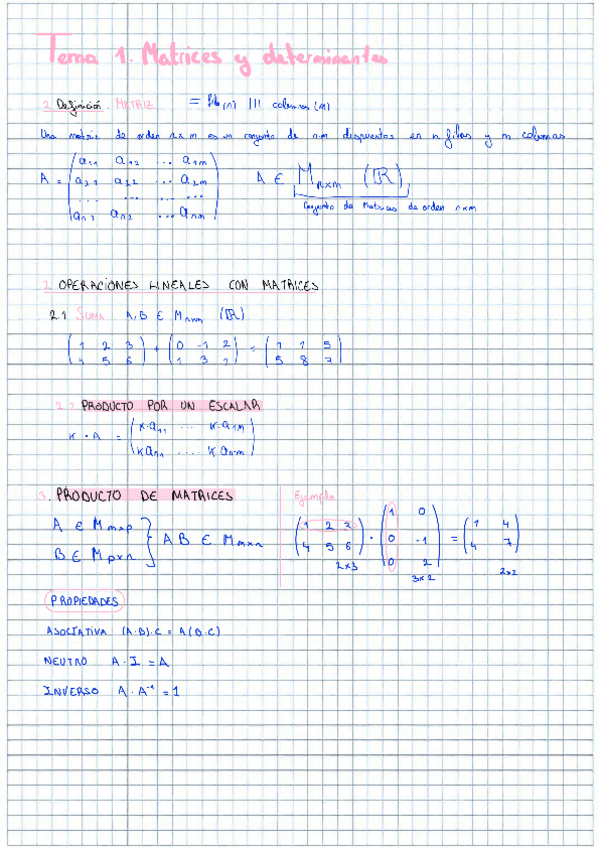 Tema 1. Matrices y determinantes
2. Definición. MATRIZ = fila (n) ||| columnas (m)
Una matriz de orden n x m es un conjunto de n·m dispuestos en n filas y m columnas
A = ( a11 a12 ... a1m
a21 a22 ... a2m
... ... ... ...
an1 an2 ... anm )
A ∈ Mnxm (ℝ)
Conjunto de Matrices de orden nxm
2. OPERACIONES LINEALES CON MATRICES
2.1 SUMA A, B ∈ Mnxm (ℝ)
( 1 2 3 ) + ( 0 -1 2 ) = ( 1 1 5 )
( 4 5 6 ) ( 1 3 1 ) ( 5 8 7 )
2.2 PRODUCTO POR UN ESCALAR
K · A = ( K·a11 ... K·a1m
K an1 .... K anm )
3. PRODUCTO DE MATRICES
A ∈ Mmxp
B ∈ Mpxn } AB ∈ Mmxn
Ejemplo
( 1 2 3 ) · ( 1 0 ) = ( 1 4 )
( 4 5 6 ) ( 0 -1 ) ( 4 7 )
2x3 ( 0 2 )
3x2 2x2
PROPIEDADES
ASOCIATIVA (A·B)·C = A(B·C)
NEUTRO A·I = A
INVERSO A·A⁻¹ = 1